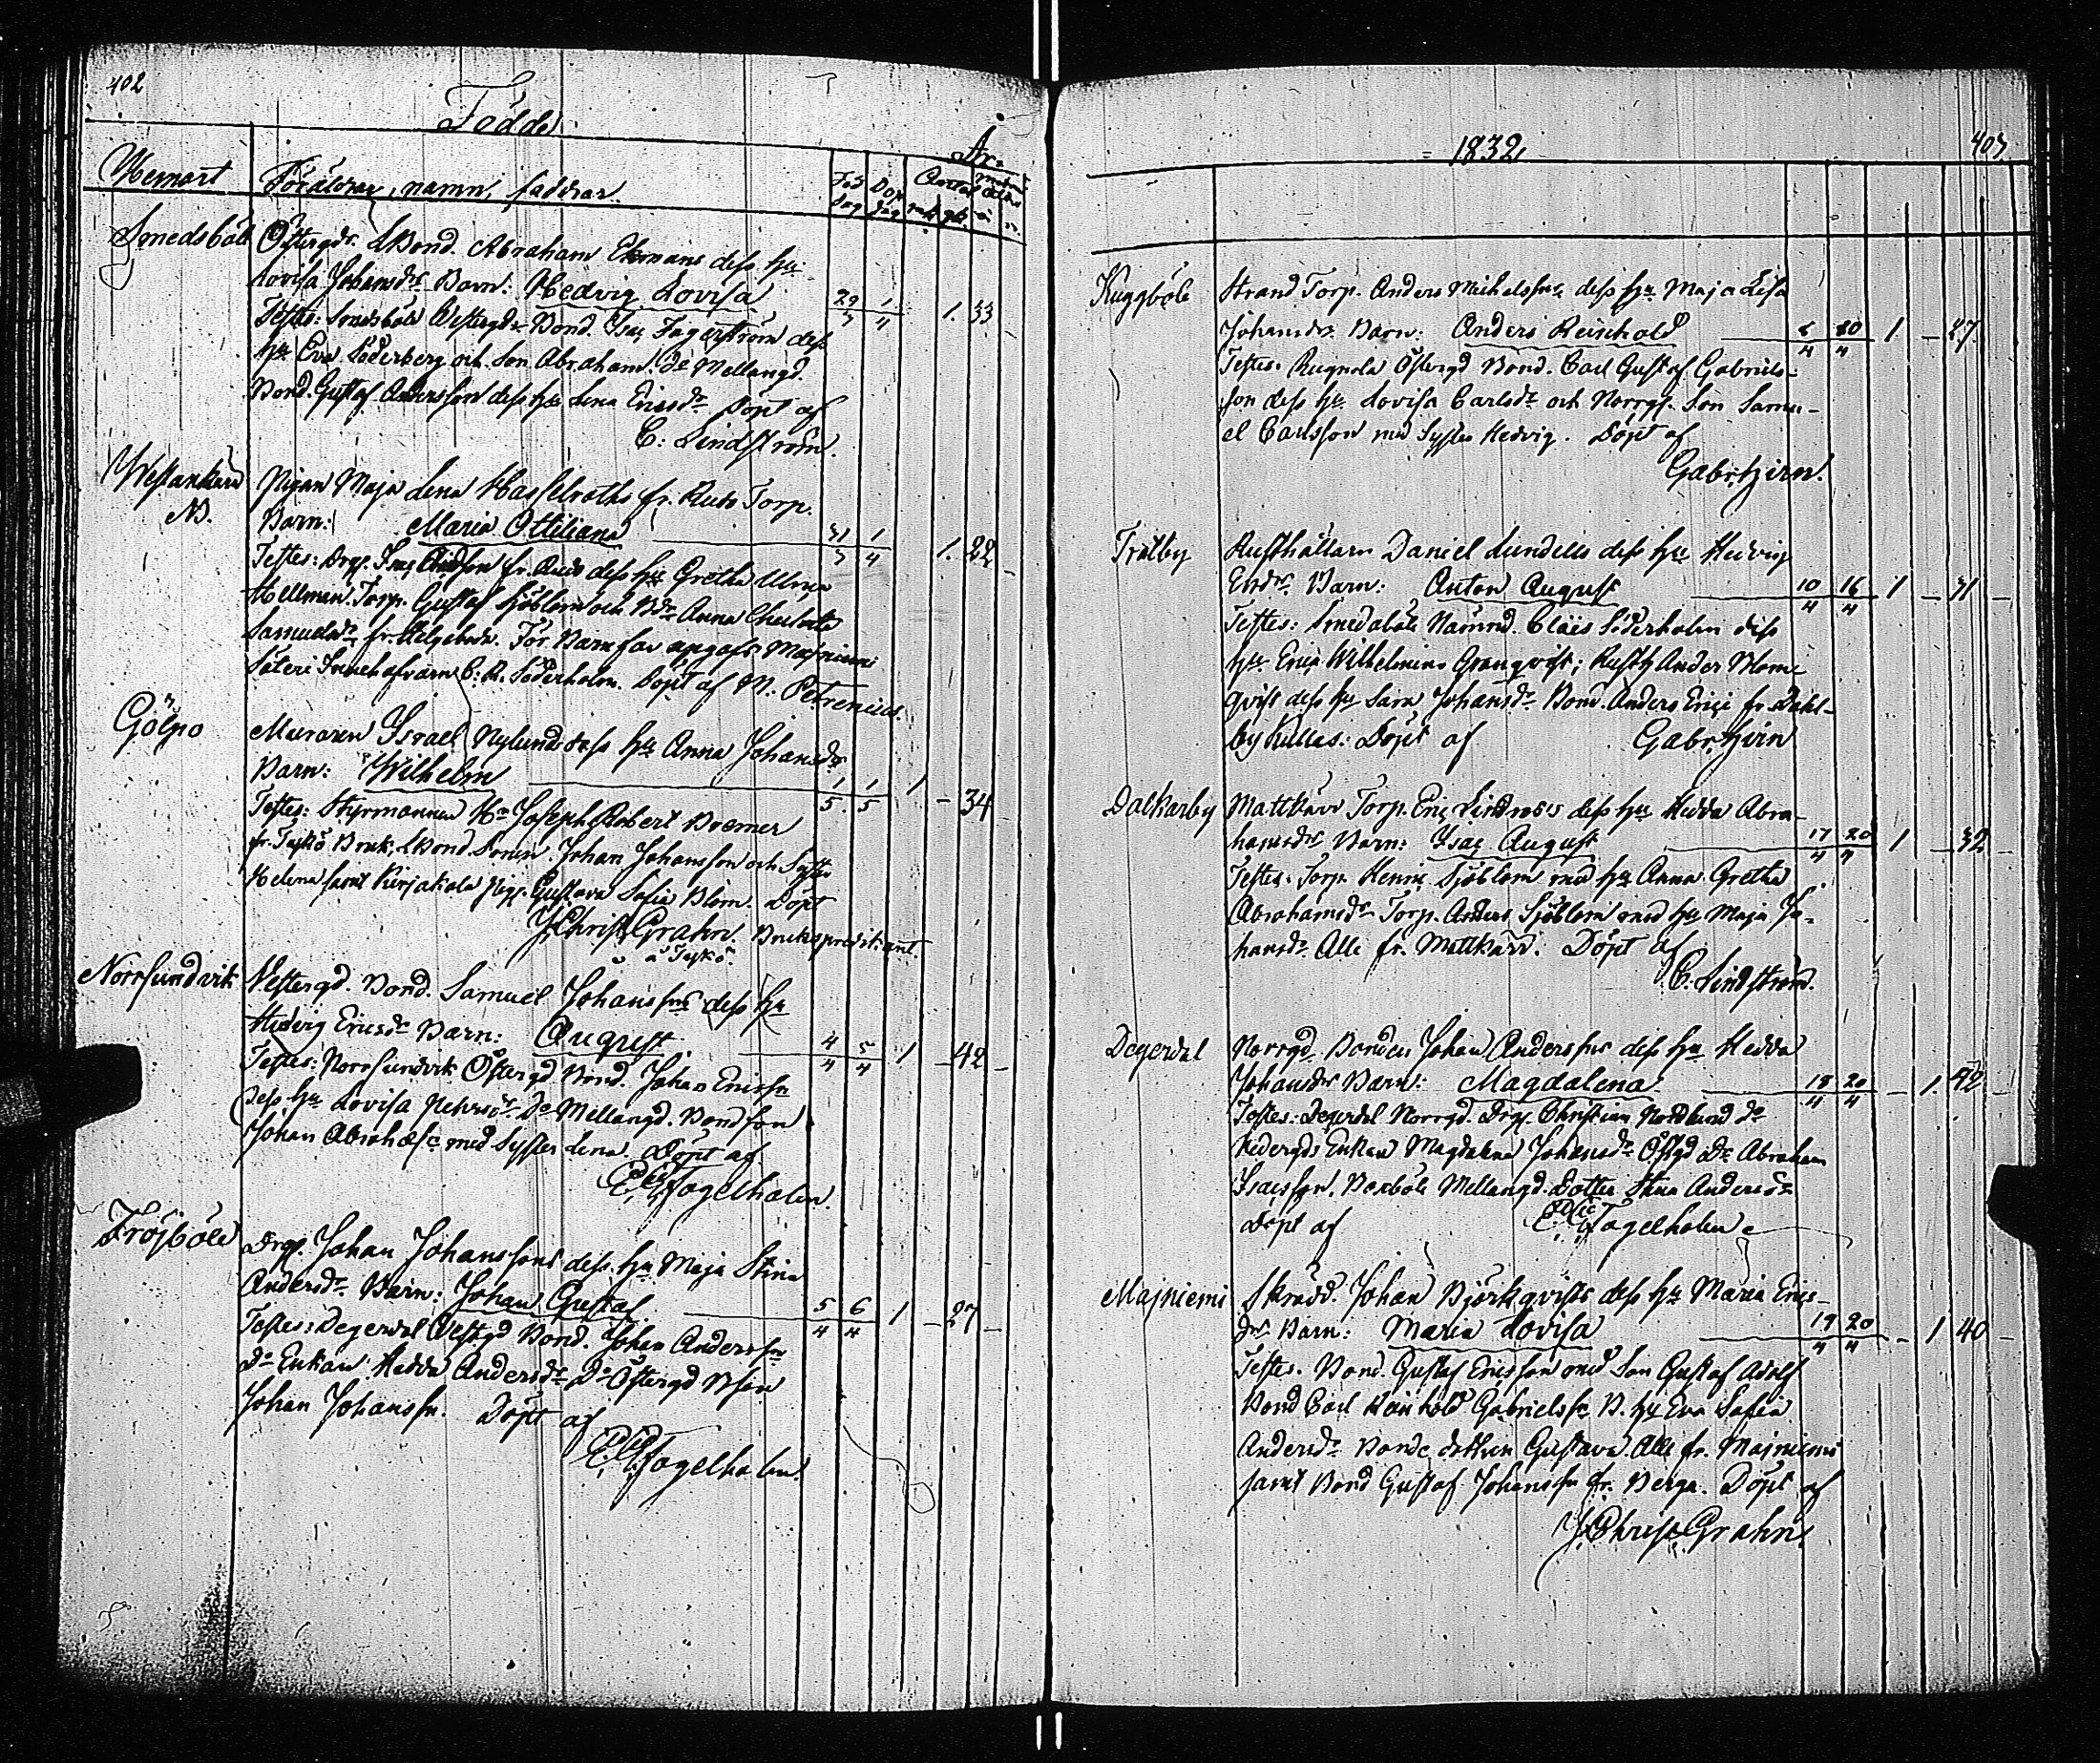 402
Födde
År
Hemort
Föräldrar, namn, faddrar.
Föd Dop
dag dag
Smedsböle
Östergds LBond. Abraham Ekmans dess hu
Lovisa Johansdr Barn: Hedvig Lovisa 29/3 1/4 1. 33
Testes: Smedsböle Westergds Bond. Isac Fagerström dess
hu Eva Söderberg och Son Abraham. do Mellangd.
Bond. Gustaf Andersson dess hu Lena Ericsdr Döpt af
C: Lindström.
Westankärr
NB.
Pigan Maja Lena Hasselroths fr. Torp.
Barn: Maria Ottiliana 31/3 1/4 1. 22
Testes: Drg. Isac fr. dess hu Greta Ulrica
Hellman. Torp. Gustaf Sjöblom och Anna Charlotta
Samuelsdr fr. Helgeboda. För Barnfar angafs Majniemi
Säteri Innehafvaren C: R. Söderholm. Döpt af N. Petrenius.
Gölpo
Muraren Israel Nylunds dess hu Anna Johansdr
Barn: Wilhelm 1/5 1/5 1 - 34
Testes: Styrmannen Hr Joseph Robert Bremer
fr. Tykö Bruk, LBond. Sonen Johan Johansson och Syster
Helena samt Kirjakala Pig. Gustava Sofia Blom. Döpt
J: Christ: Grahn, Brukspredikant
å Tykö.
Norrsundvik
Westergd. Bond. Samuel Johanssons dess hu
Hedvig Ericsdr Barn: August 4/4 5/4 1 - 42 -
Testes: Norrsundvik Östergd Bond. Johan Ericssn
dess hu Lovisa Pehrsdr. Do Mellangd. Bondson
Johan Abrahamss. med Syster Lena. Döpt af
Fogelholm.
Fröjböle
Drg. Johan Johanssons dess hu Maja Stina
Andersdr. Barn: Johan Gustaf 5/4 6/4 1 - 27 -
Testes: Degerdal Vestgd Bond. Johan Anderssn
Do Enkan Hedda Andersdr Do Östergd Bson
Johan Johanssn. Döpt af
Fogelholm.
1832.
403
Kuggböle
Strand Torp. Anders Michelssns dess hu Maja Lisa
Johansdrs Barn: Anders Reinhold 8/4 10/4 1 - 27.
Testes: Rugnola Östergd Bond. Carl Gustaf Gabriels-
son dess hu Lovisa Carlsdr och Norrg. Son Samu-
el Carlsson med Syster Hedvig. Döpt af
Gabr: Hirn.
Trälby
Rusthållarn Daniel Lundells dess hu Hedvig
Ersdr. Barn: Anton August 10/4 16/4 1 - 31 -
Testes: Smedaböle Nämnd. Claës Söderholm dess
hu Erica Wilhelmina Granqvist; Rusth Ander Blom-
qvist dess hu Sara Johansdr Bond. Anders Erici fr. Dahl-
by Kullas: Döpt af Gabr: Hirn
Dalkarby
Mattkärr Torp. Eric Lindroos dess hu Hedda Abra-
hamsdrs Barn: Isac August 17/4 20/4 1 - 32 -
Testes. Torp. Henric Sjöblom med hu Anna Greta
Abrahamsdr Torp. Anders Sjöblom med hu Maja Jo-
hansdr. Alle fr. Mattkärr. Döpt af
C: Lindström.
Degerdal
Norrgd. Bonden Johan Anderssns dess hu Hedda
Johansdrs Barn: Magdalena 18/4 20/4 - 1. 42
Testes: Degerdal Norrgd. Drg. Christian Nordlund do
Nedergds Enkan Magdalena Johansdr Östgd Do Abraham
Isacsson, Boxböle Mellangd. Dotter Stina Andersdr
Döpt af Fogelholm
Majniemi
Skrädd. Johan Björkqvists dess hu Maria Erics-
drs Barn: Maria Lovisa 19/4 20/4 - 1 40 -
Testes. Bond. Gustaf Ericsson med Son Gustaf Adolf
Bond Carl Reinhold Gabrielssn B. hu Eva Sofia
Andersdr. Bonde dottren Gustava. Alle fr. Majniemi
samt Bond Gustaf Johanssn fr. Berga. Döpt af
J: Christ: Grahn.